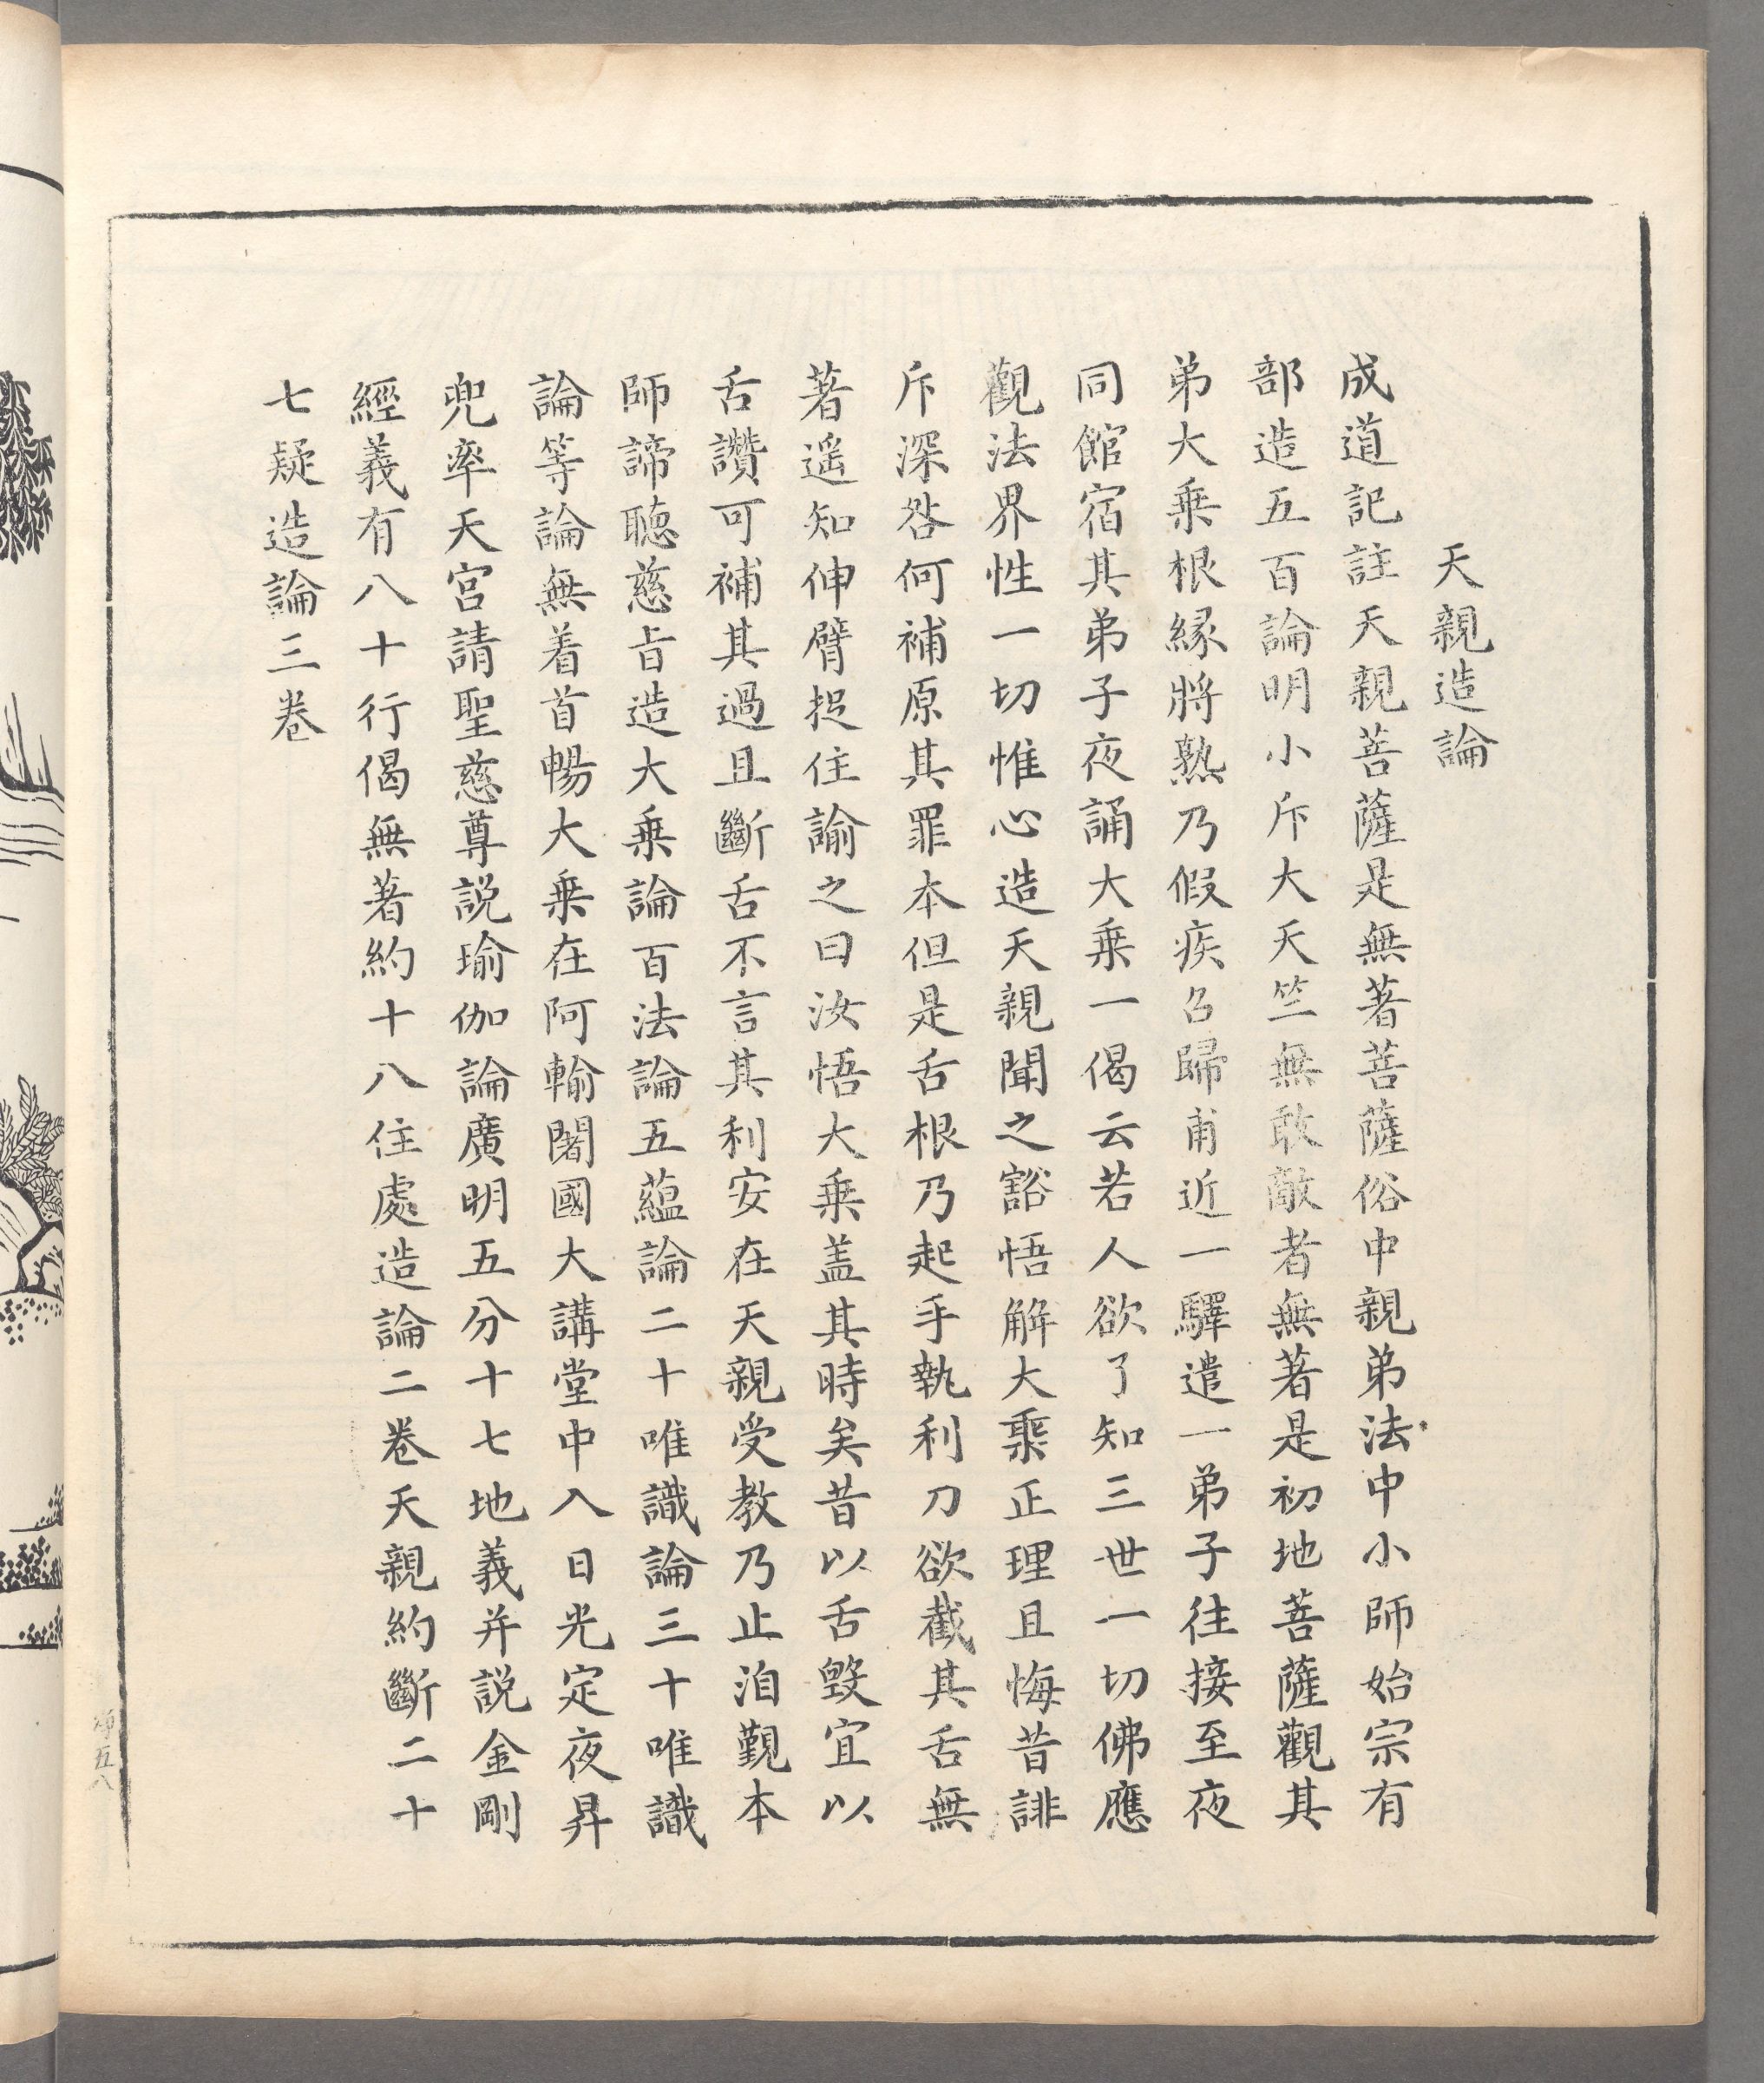 天親造論
成道記註天親菩薩是無著菩薩俗中親弟法中小師始宗有
部造五百論明小斥大天竺無敢敵者無著是初地菩薩觀其
弟大乗根縁將熟乃假疾召歸甫近一驛遣一弟子往接至夜
同館宿其弟子夜誦大乗一偈云若人欲了知三世一切佛應
觀法界性一切惟心造天親聞之豁悟解大乗正理且悔昔誹
斥深咎何補原其罪本但是舌根乃起手執利刀欲截其舌無
著遥知伸臂捉住諭之曰汝悟大乗盖其時矣昔以舌毀宜以
舌讚可補其過且斷舌不言其利安在天親受教乃止洎觀本
師諦聴慈㫖造大乗論百法論五藴論二十唯識論三十唯識
論等論無着首暢大乗在阿輸闍國大講堂中入日光定夜昇
兜率天宮請聖慈尊説瑜伽論廣明五分十七地義并説金剛
經義有八十行偈無著約十八住處造論二卷天親約斷二十
七疑造論三卷